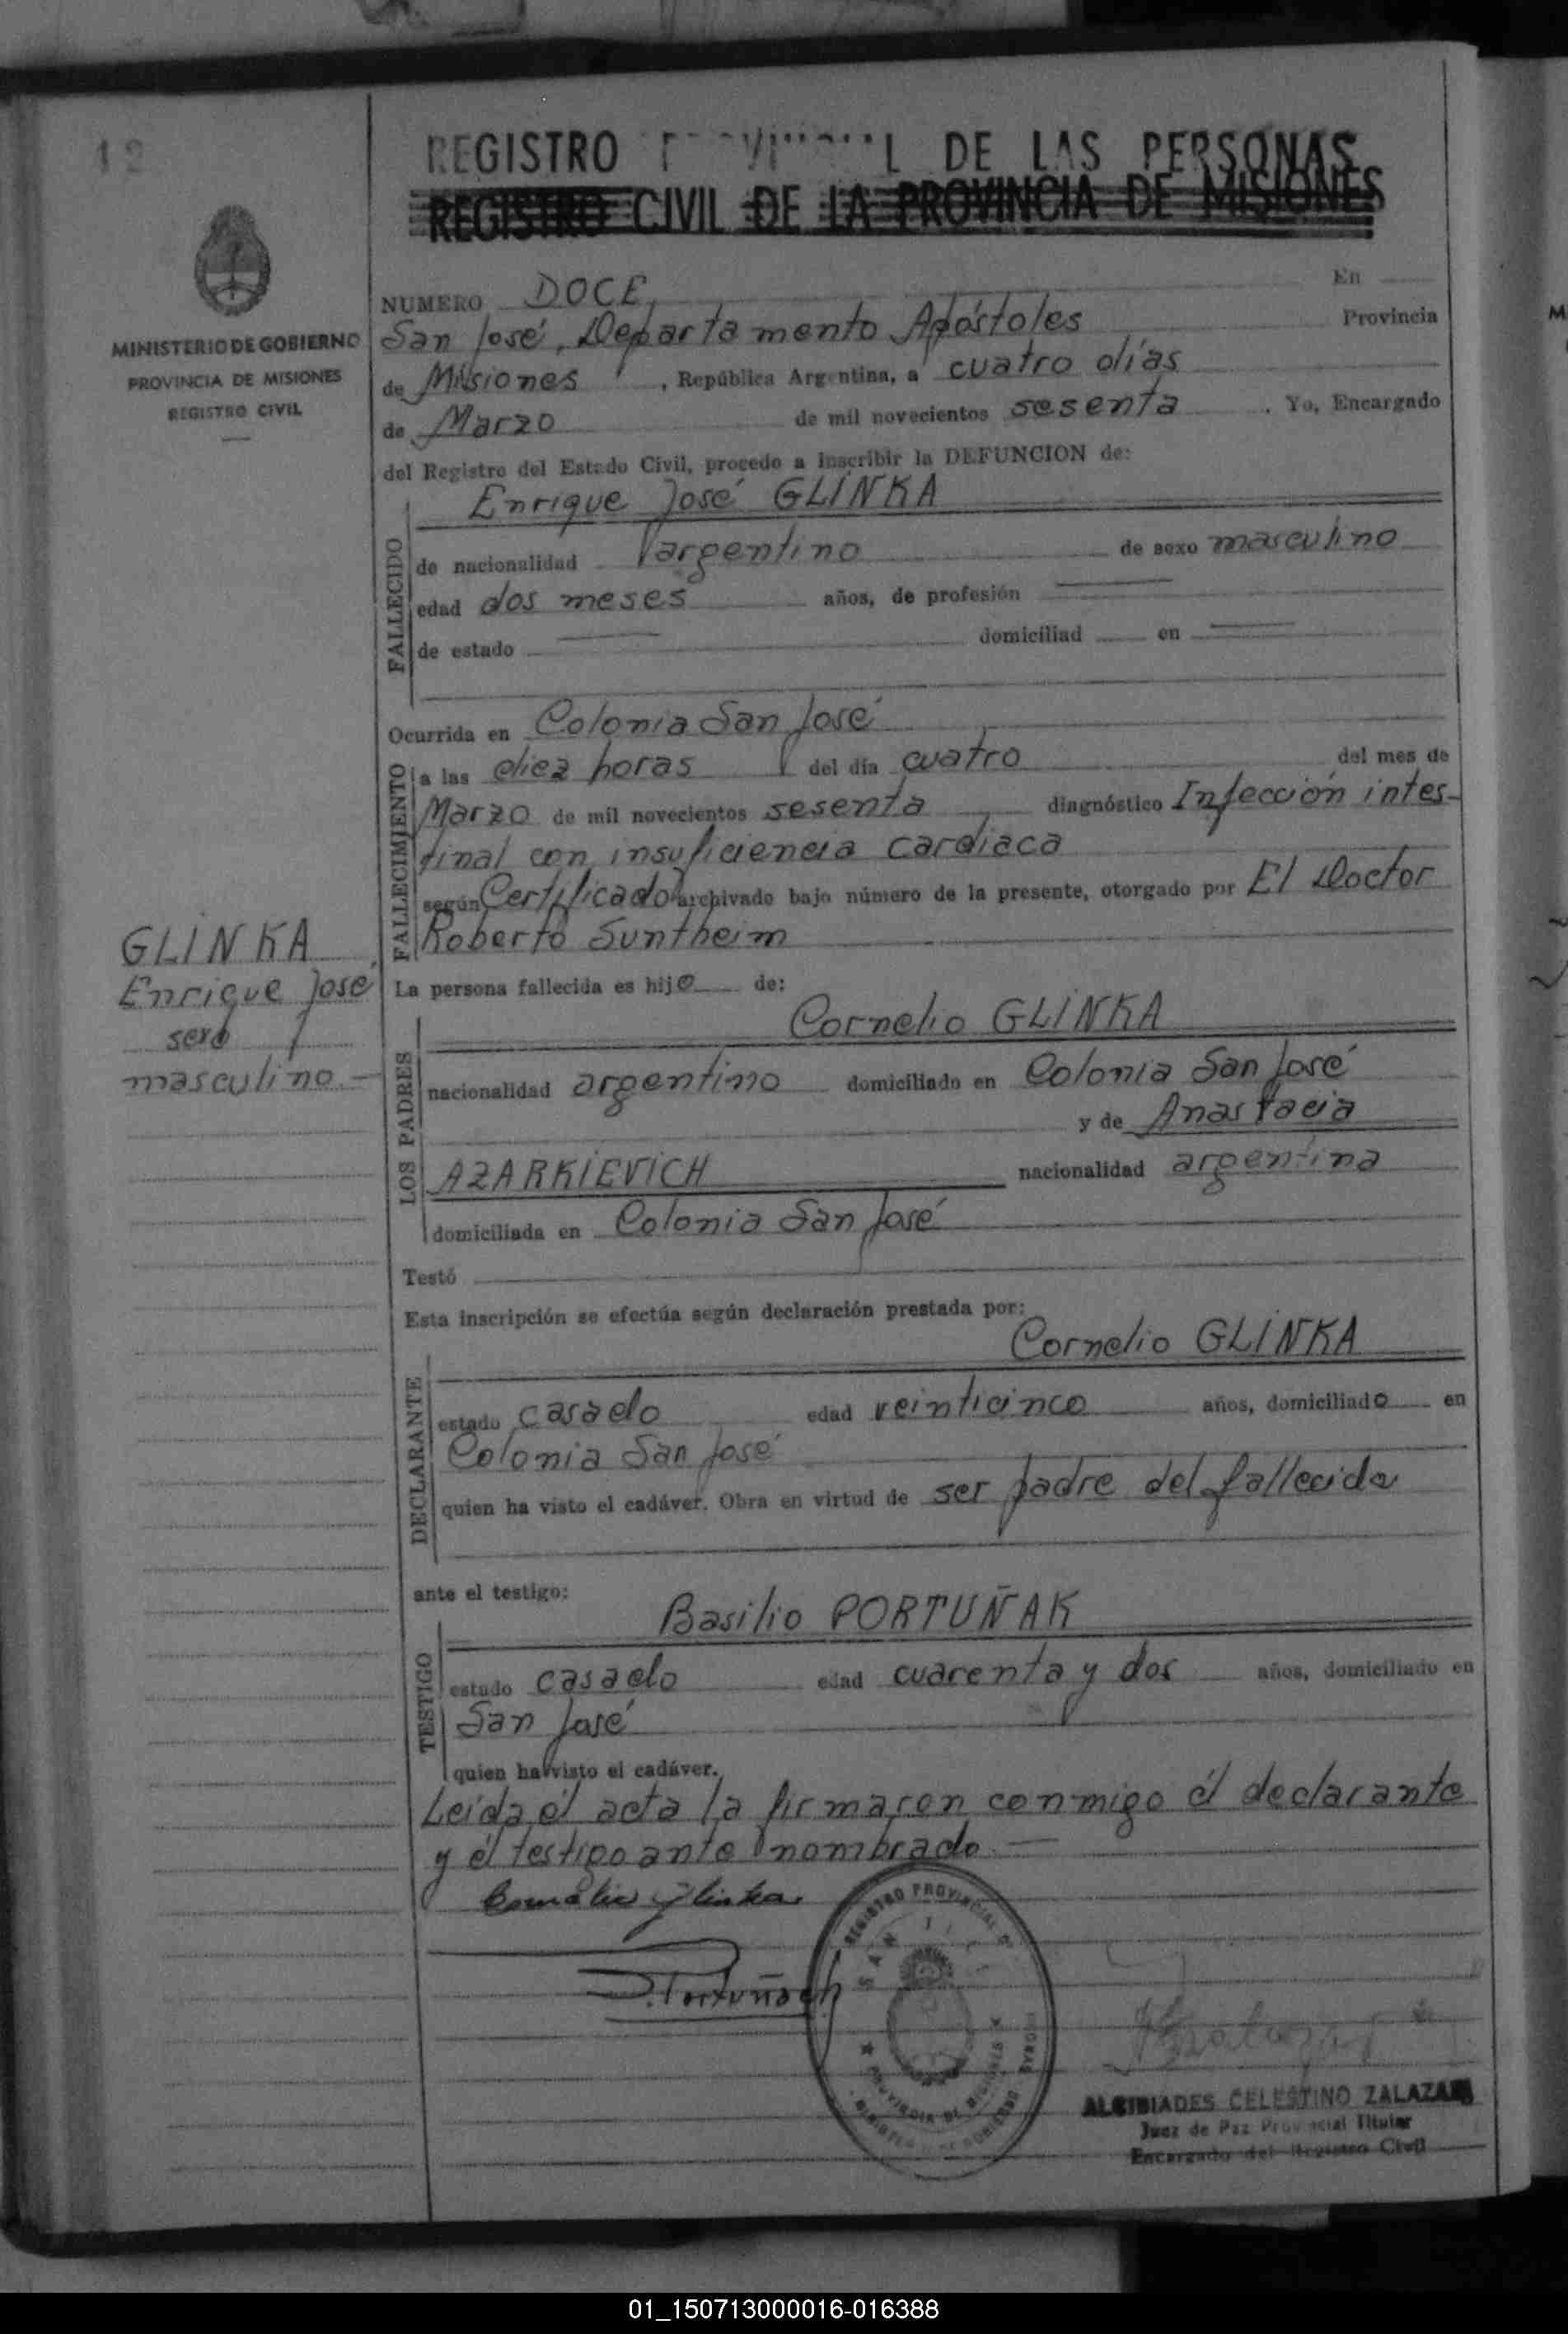 12
REGISTRO DE LAS PERSONAS
REGISTRO CIVIL DE LA PROVINCIA DE MISIONES
MINISTERIO DE GOBIERNO
PROVINCIA DE MISIONES
REGISTRO CIVIL
NUMERO DOCE, En
San José, Departamento Apóstoles Provincia
de Misiones, República Argentina, a cuatro días
de Marzo de mil novecientos sesenta. Yo, Encargado
del Registro del Estado Civil, procedo a inscribir la DEFUNCION de:
Enrique José GLINKA
FALLECIDO
de nacionalidad argentino de sexo masculino
edad dos meses años, de profesión
de estado domiciliad en
Ocurrida en Colonia San José
FALLECIMIENTO
a las diez horas del día cuatro del mes de
Marzo de mil novecientos sesenta diagnóstico Infección intes-
tinal con insuficiencia cardiaca
según Certificado archivado bajo número de la presente, otorgado por El Doctor
Roberto Suntheim
GLINKA
Enrique José
sexo
masculino —
La persona fallecida es hijo de:
LOS PADRES
Cornelio GLINKA
nacionalidad argentino domiciliado en Colonia San José
y de Anastacia
AZARKIEVICH nacionalidad argentina
domiciliada en Colonia San José
Testó
Esta inscripción se efectúa según declaración prestada por:
Cornelio GLINKA
DECLARANTE
estado casado edad veinticinco años, domiciliado en
Colonia San José
quien ha visto el cadáver. Obra en virtud de ser padre del fallecido
ante el testigo:
Basilio PORTUÑAK
TESTIGO
estado casado edad cuarenta y dos años, domiciliado en
San José
quien ha visto el cadáver.
Leida él acta la firmaron conmigo él declarante
y él testigo ante nombrado. —
Cornelio Glinka
Portuñak
REGISTRO PROVINCIAL DE
SAN
PROVINCIA DE MISIONES
ALCIBIADES CELESTINO ZALAZAR
Juez de Paz Provincial Titular
Encargado del Registro Civil
01_150713000016-016388